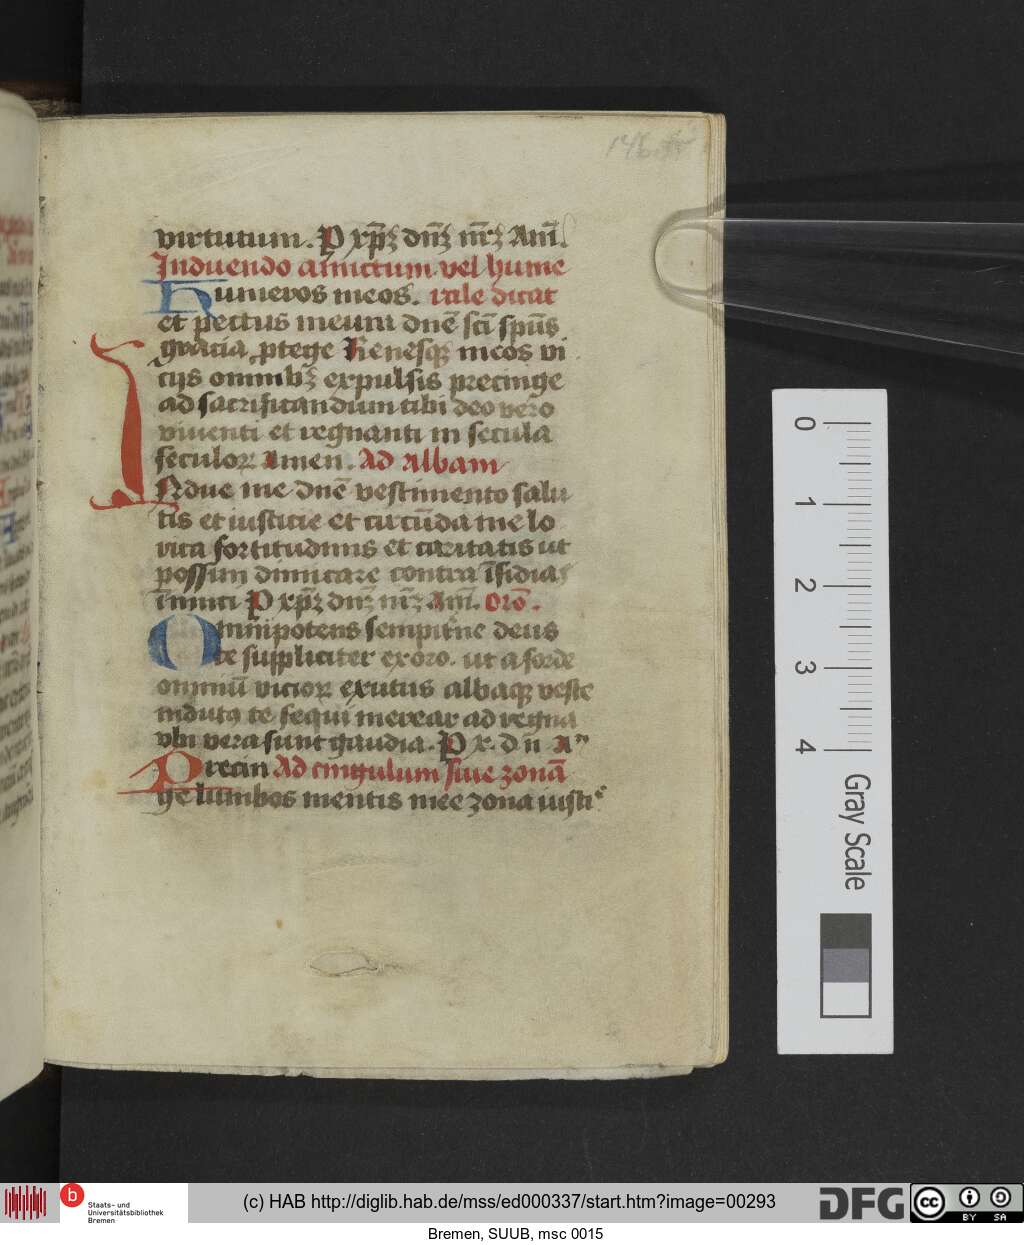 146r
virtutum. P xp̄ꝫ dn̄ꝫ nr̄ꝫ Am̄.
Induendo amictum vel hume
Humeros meos. rale dicat
et pectus meum dnē sc̄i sp̄us
gracia ꝓtege Renesqꝫ meos vi
ciis omnibꝫ expulsis precinge
ad sacrificandum tibi deo vero
viuenti et regnanti in secula
seculoꝝ Amen. Ad Albam
INdue me dnē vestimento salu
tis et iusticie et circūda me lo
rica fortitudinis et caritatis ut
possim dimicare contra īsidias
inimici P xp̄ꝫ dn̄ꝫ nr̄ꝫ Am̄. Orō.
Omnipotens sempit̄ne deus
te suppliciter exoro. ut a forde
omniū vicioꝝ exutus albaqꝫ veste
indutꝰ te sequi merear ad regna
vbi vera sunt gaudia. P x. d n̄ A
Precin Ad cingulum siue zonā
ge lumbos mentis mee zona iusti
0
1
2
3
4
Gray Scale
b
Staats- und
Universitätsbibliothek
Bremen
(c) HAB http://diglib.hab.de/mss/ed000337/start.htm?image=00293
DFG
cc
BY SA
Bremen, SUUB, msc 0015